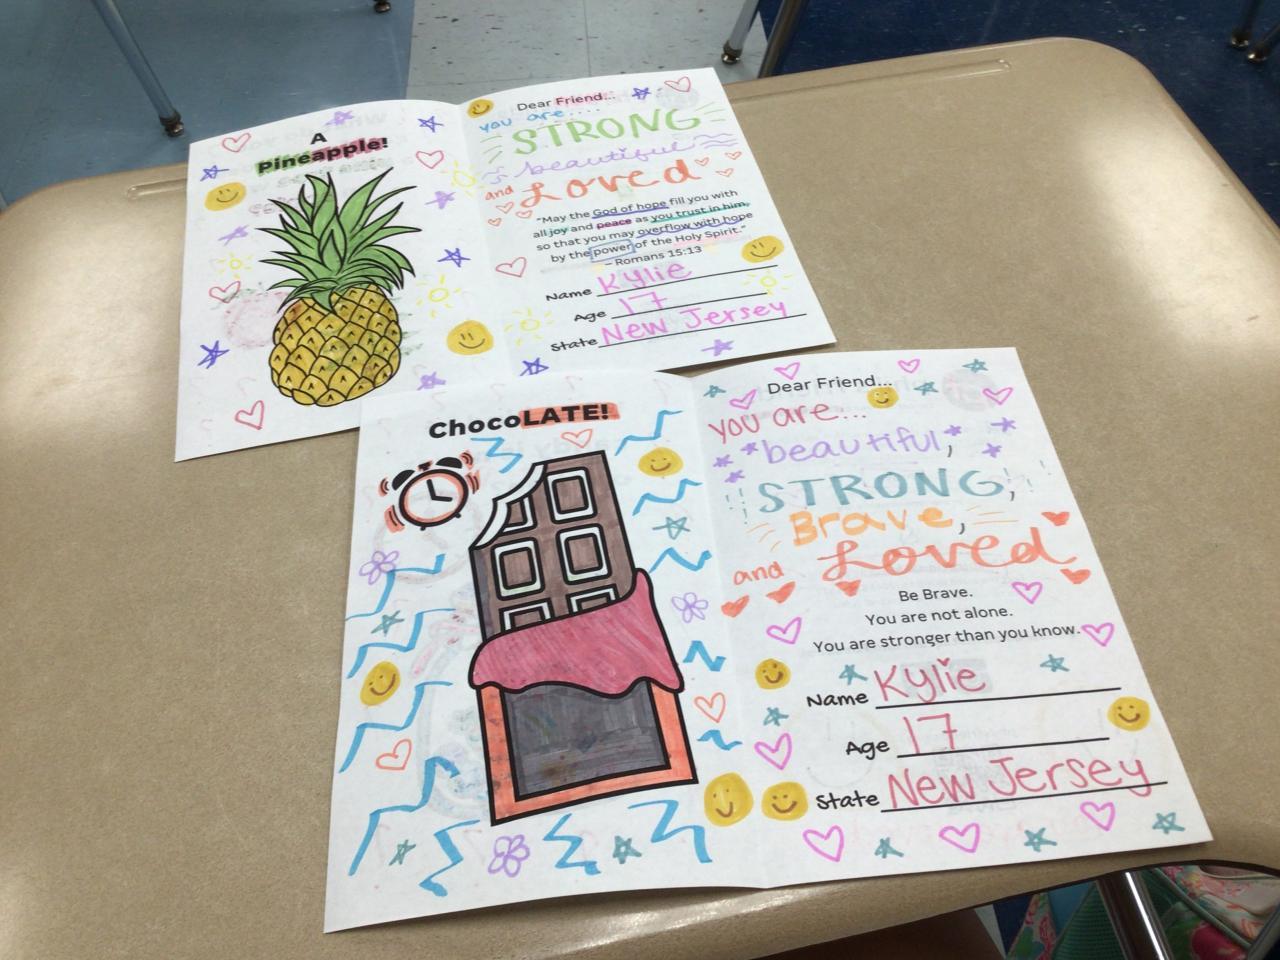 A
Pineapple!
Dear Friend...
you are....
STRONG
beautiful
and Loved
"May the God of hope fill you with
all joy and peace as you trust in him,
so that you may overflow with hope
by the power of the Holy Spirit."
– Romans 15:13
Name Kylie
Age 17
State New Jersey
ChocoLATE!
Dear Friend...
you are...
beautiful,
STRONG,
Brave,
and Loved
Be Brave.
You are not alone.
You are stronger than you know.
Name Kylie
Age 17
State New Jersey